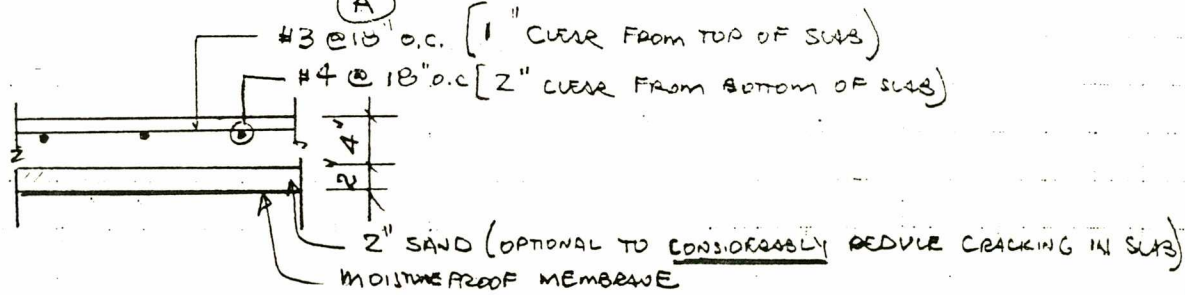 A
#3 @ 18" O.C. [1" CLEAR FROM TOP OF SLAB)
#4 @ 18" O.C [2" CLEAR FROM BOTTOM OF SLAB)
4"
2"
2" SAND (OPTIONAL TO CONSIDERABLY REDUCE CRACKING IN SLAB)
MOISTUREPROOF MEMBRANE